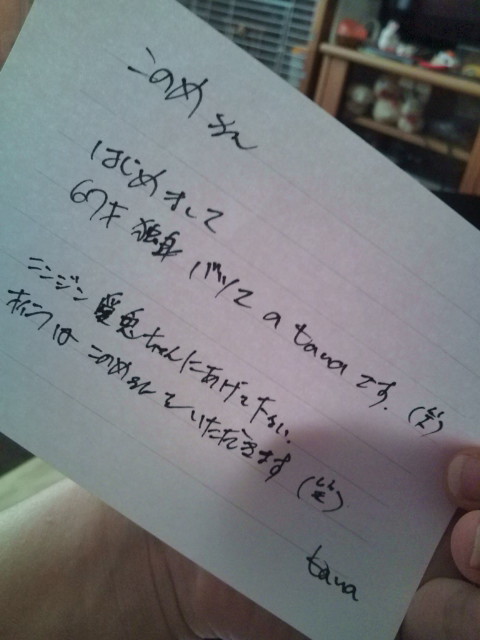 このめ さん
はじめまして
67才 独身 バツ2 の tana です。(笑)
ニンジン 愛兎ちゃんにあげて下さい。
は このめさん いただきます (笑)
tana